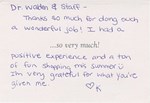 Dr. Walden & Staff -
Thanks so much for doing such
a wonderful job! I had a
...so very much!
positive experience and a ton
of fun shopping this summer!
I'm very grateful for what you've
given me.
♡K